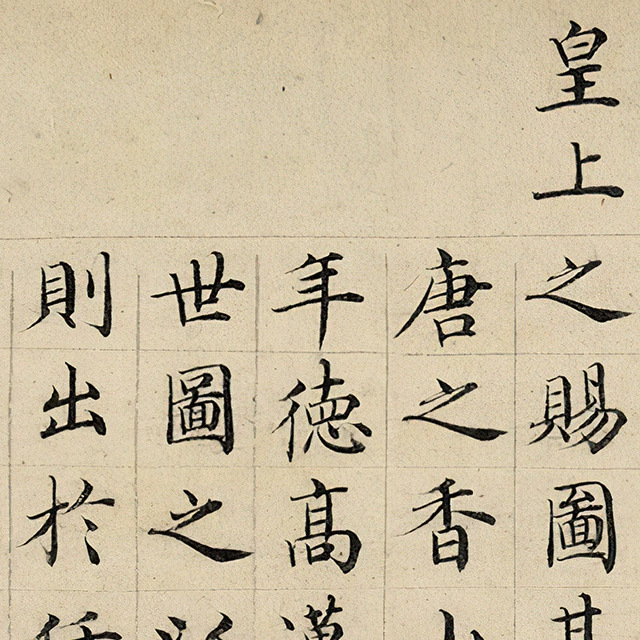 皇上之賜圖其
唐之香山
年德高漢
世圖之
則出於